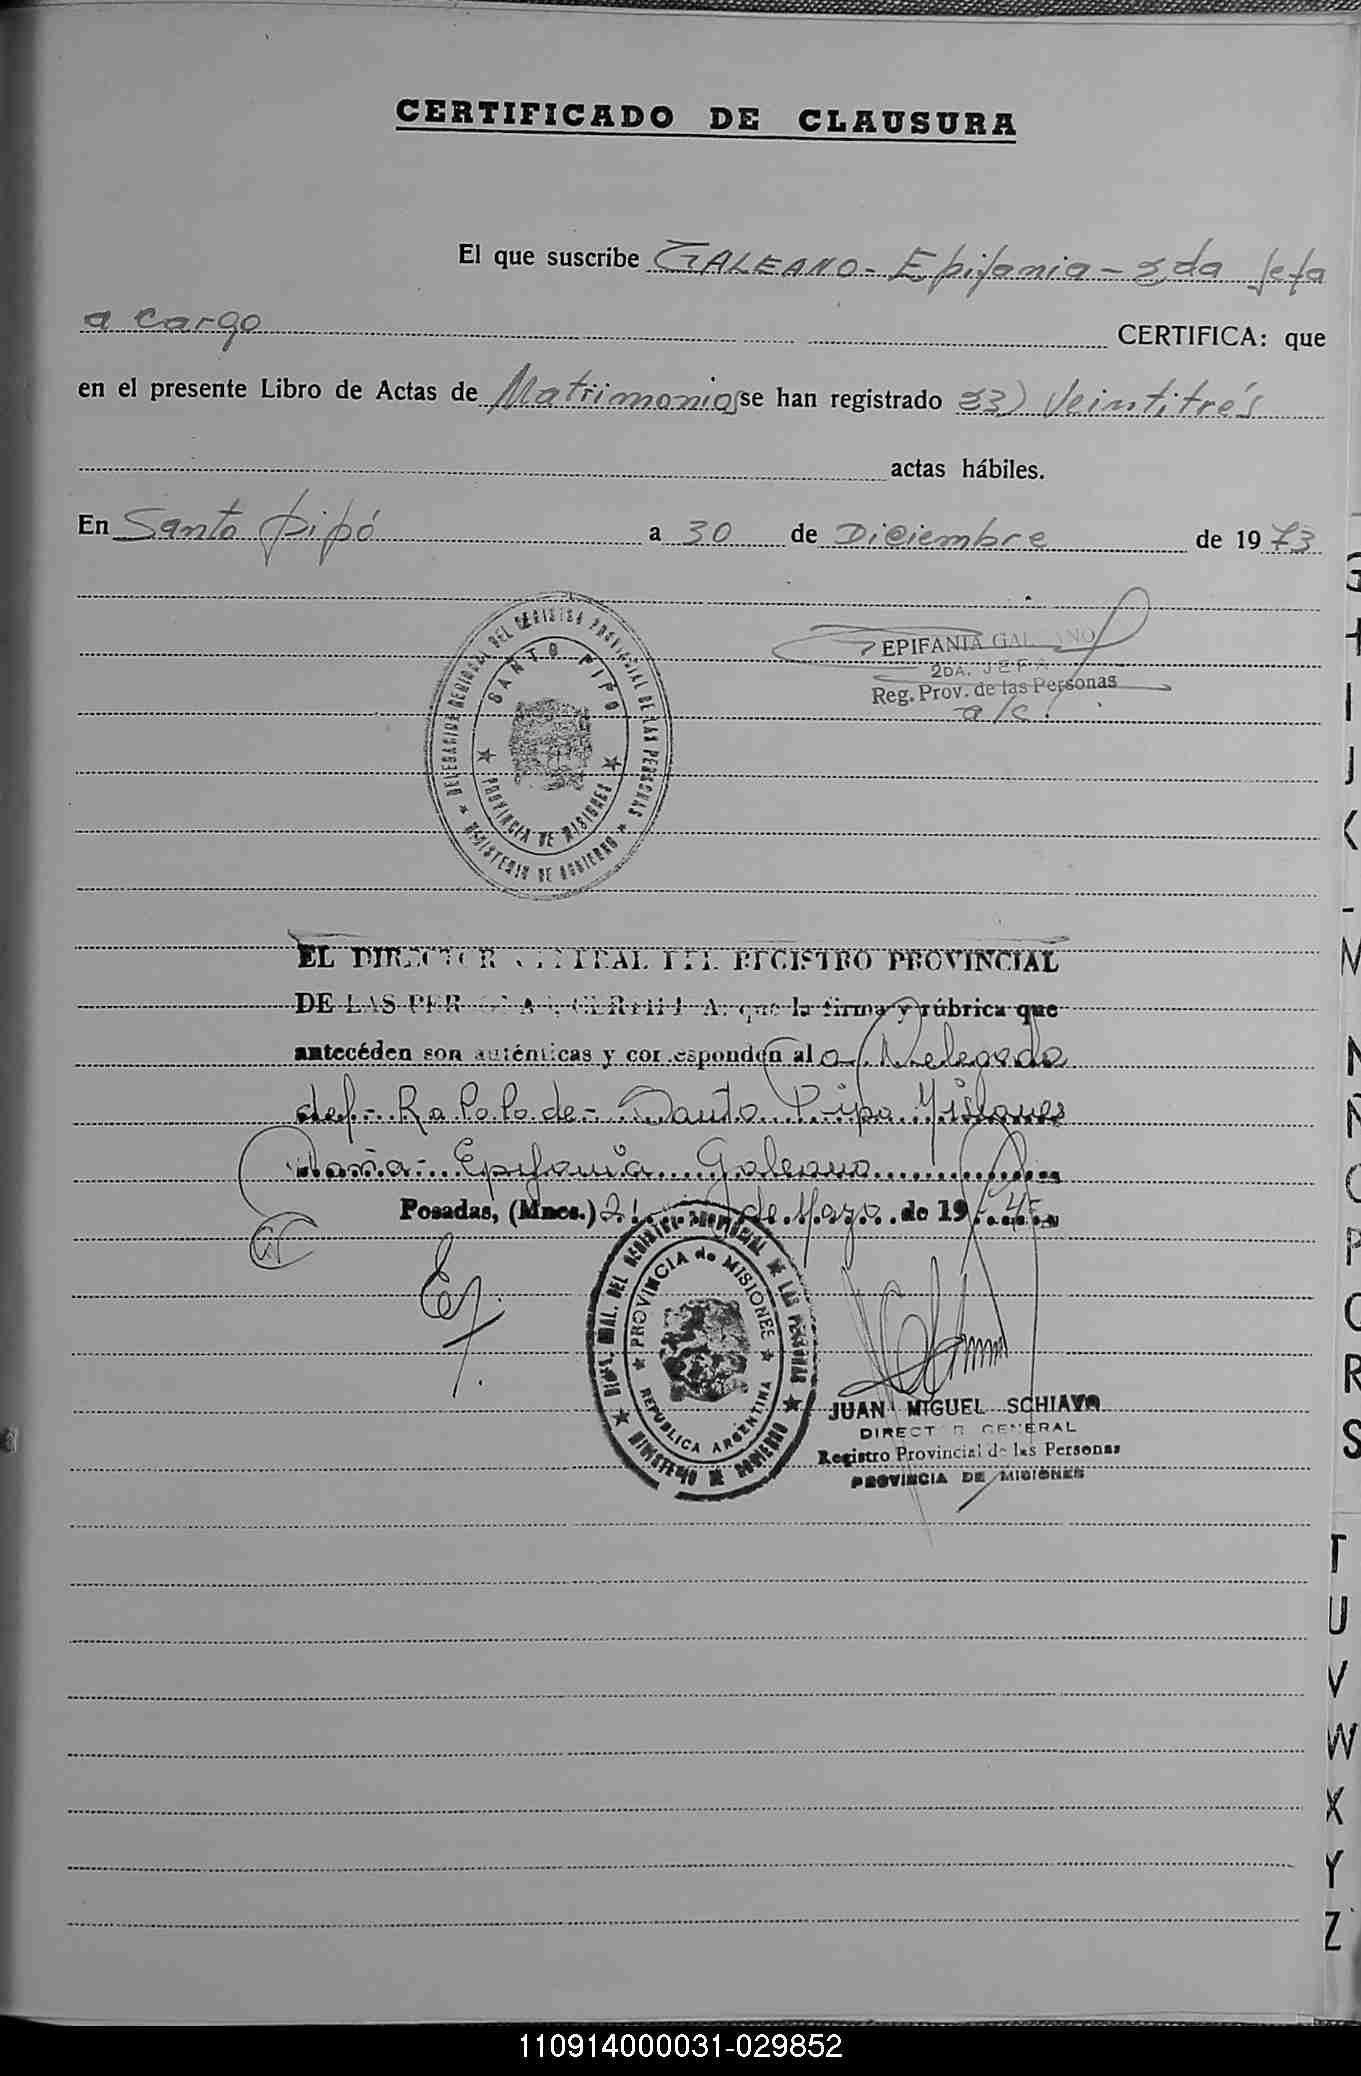 CERTIFICADO DE CLAUSURA
El que suscribe GALEANO - Epifania - 2da Jefa
a cargo CERTIFICA: que
en el presente Libro de Actas de Matrimonios se han registrado 23) Veintitrés
actas hábiles.
En Santo Pipó a 30 de Diciembre de 1973
DELEGACION REGIONAL DEL REGISTRO PROVINCIAL DE LAS PERSONAS
SANTO PIPO
PROVINCIA DE MISIONES
MINISTERIO DE GOBIERNO
EPIFANIA GALEANO
2DA. JEFA
Reg. Prov. de las Personas
a/c.
EL DIRECTOR GENERAL DEL REGISTRO PROVINCIAL
DE LAS PERSONAS CERTIFICA: que la firma y rúbrica que
antecéden son auténticas y corresponden al a Delegada
del - R. P. P. de - Santo Pipo Misiones
Doña - Epifania Galeano
Posadas, (Mnes.) 21 de Mayo de 19
DIREC. GRAL. DEL REGISTRO PROVINCIAL DE LAS PERSONAS
PROVINCIA de MISIONES
REPUBLICA ARGENTINA
MINISTERIO DE GOBIERNO
JUAN MIGUEL SCHIAVO
DIRECTOR GENERAL
Registro Provincial de las Personas
PROVINCIA DE MISIONES
I
J
K
M
N
Ñ
O
P
Q
R
S
T
U
V
W
X
Y
Z
110914000031-029852